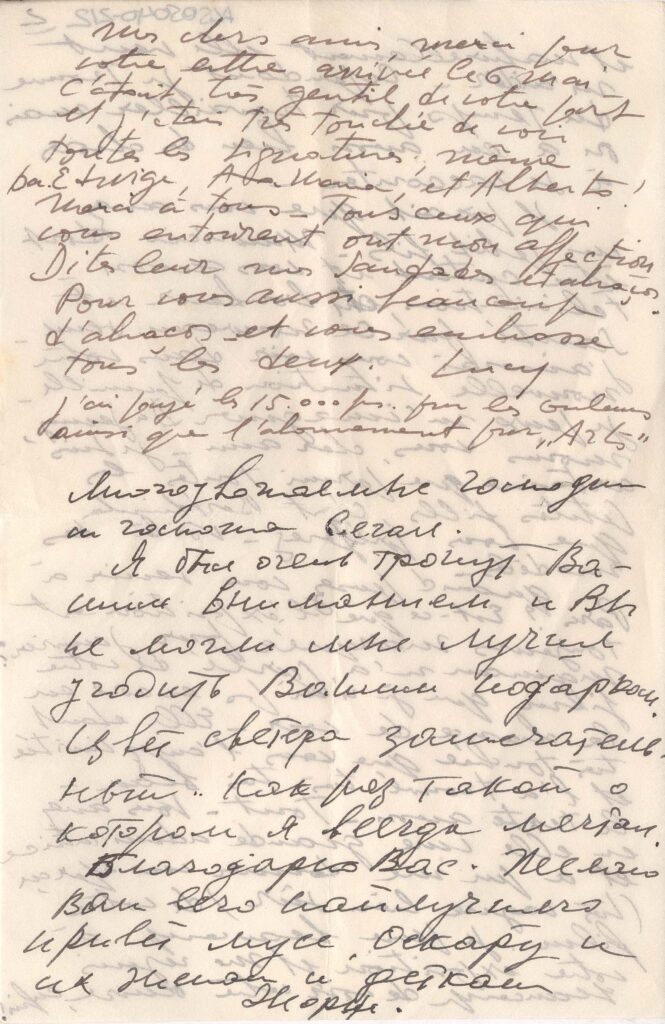 ASO3040-212
2
mes chers amis, merci pour
votre lettre arrivée le 6 mai
C'était très gentil de votre part
et j'étais très touchée de voir
toutes les signatures, même
Ana Maria, et Alberto!
Merci à tous - Tous ceux qui
vous entourent ont mon affection
Dites leur mes saudades et abraços.
Pour vous aussi beaucoup
d'abraços et vous embrasse
tous les deux. Lucy
j'ai payé les 15.000 frs. pour les couleurs
ainsi que l'abonnement pour „Arts"
Многоуважаемые господин
и госпожа Сегал.
Я был очень тронут Ва-
шим вниманием и Вы
не могли мне лучше
угодить Вашим подарком.
Цвет светера замечатель-
ный. Как раз такой о
котором я всегда мечтал.
Благодарю Вас. Желаю
Вам всего наилучшего
привет Мусе, Оскару и
их женам и деткам
Жорж.